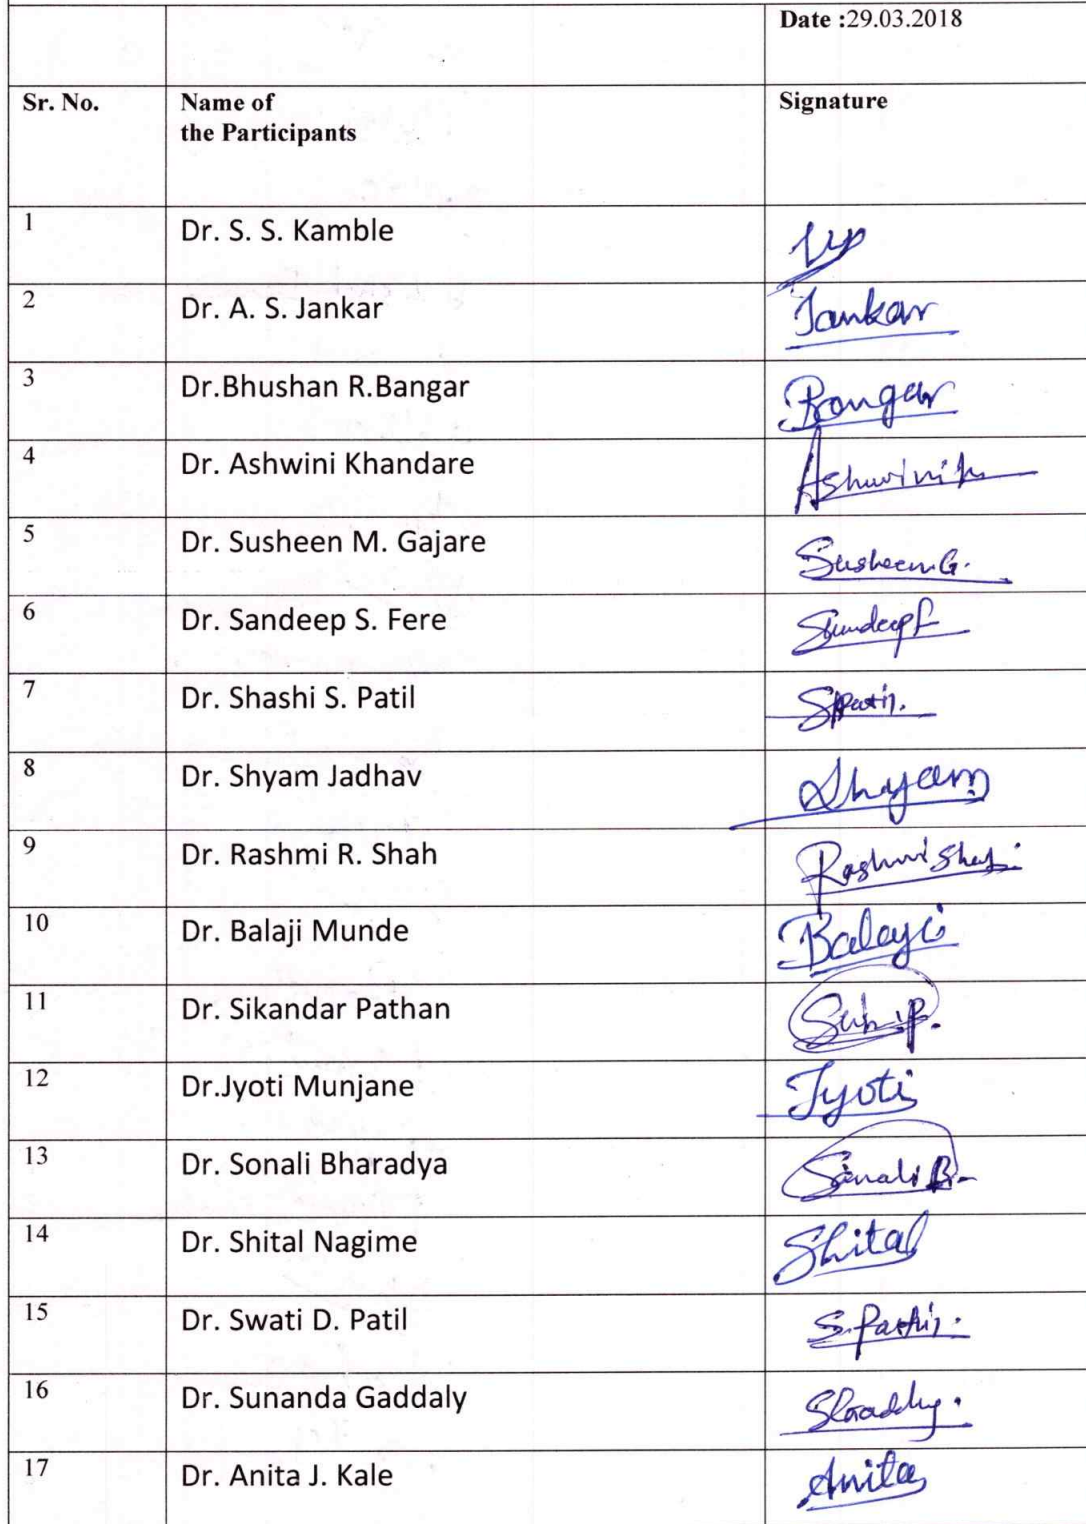 Date :29.03.2018
Sr. No. Name of Signature
the Participants
1 Dr. S. S. Kamble
2 Dr. A. S. Jankar Jankar
3 Dr.Bhushan R.Bangar Bangar
4 Dr. Ashwini Khandare Ashwini
5 Dr. Susheen M. Gajare Susheen G.
6 Dr. Sandeep S. Fere Sandeep F
7 Dr. Shashi S. Patil SPatil.
8 Dr. Shyam Jadhav Shyam
9 Dr. Rashmi R. Shah Rashmi Shah
10 Dr. Balaji Munde Balaji
11 Dr. Sikandar Pathan
12 Dr.Jyoti Munjane Jyoti
13 Dr. Sonali Bharadya Sonali B.
14 Dr. Shital Nagime Shital
15 Dr. Swati D. Patil S. Patil.
16 Dr. Sunanda Gaddaly
17 Dr. Anita J. Kale Anita